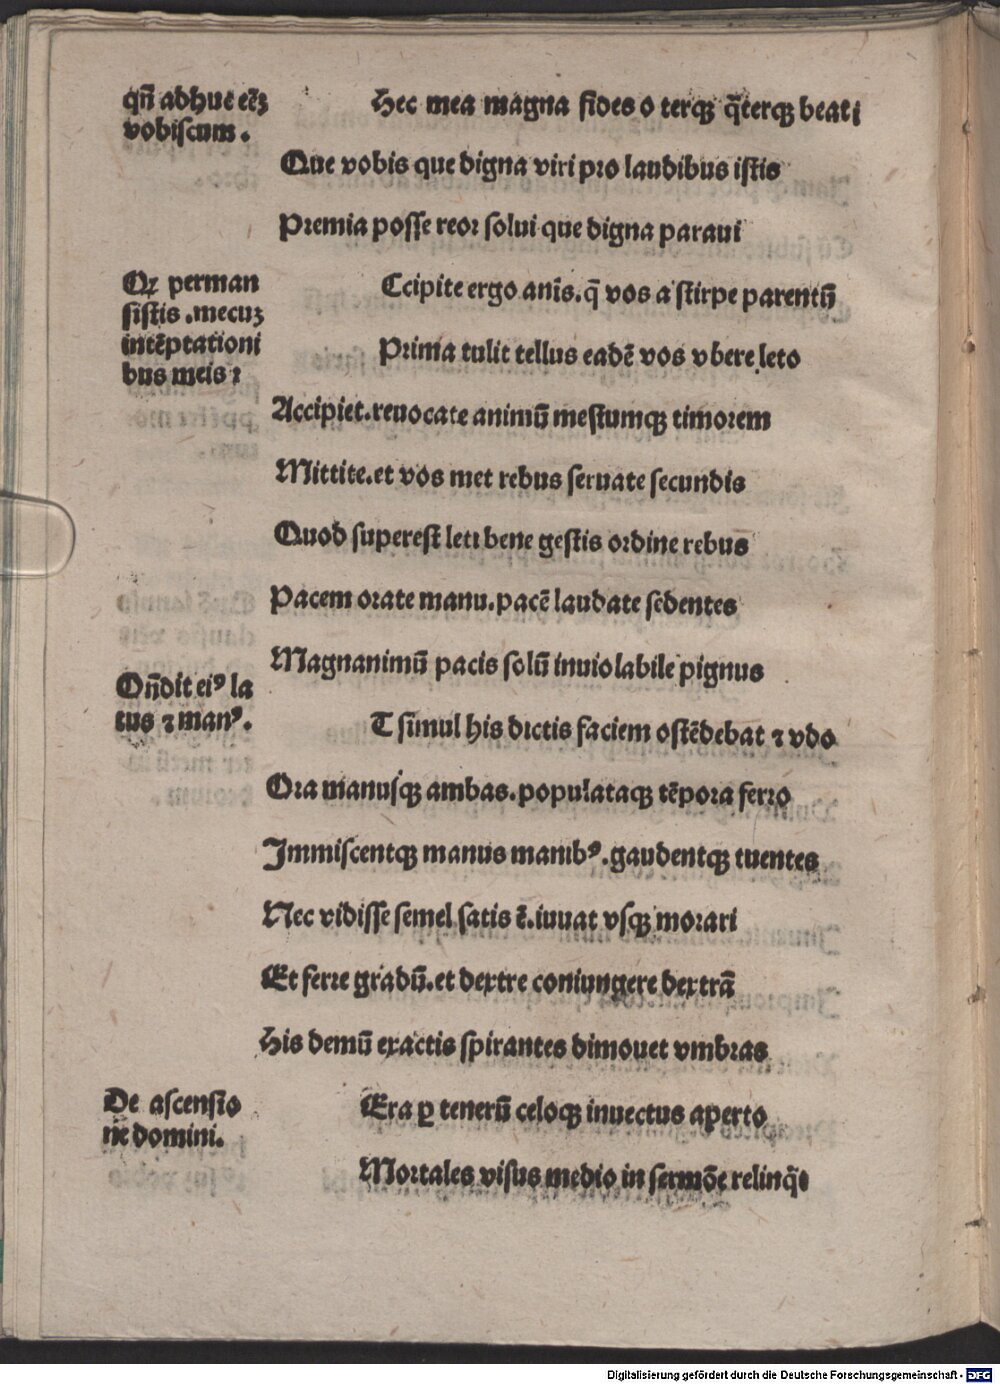 qñ adhuc erã
vobiscum.
Hec mea magna fides o terqꝫ q̃terqꝫ beati
Que vobis que digna viri pro laudibus istis
Premia posse reor solui que digna paraui
Qꝛ perman
sistis .mecuꝫ
intẽptationi
bus meis ⁊
Ccipite ergo anĩs.q̃ vos a stirpe parentũ
Prima tulit tellus eadẽ vos vbere leto
Accipiet.reuocate animũ mestumqꝫ timorem
Mittite.et vos met rebus seruate secundis
Quod superest leti bene gestis ordine rebus
Pacem orate manu.pacẽ laudate sedentes
Magnanimũ pacis solũ inuiolabile pignus
Oñdit eiꝰ la
tus ⁊ manꝰ.
T simul his dictis faciem ostẽdebat ⁊ vdo
Ora manusqꝫ ambas.populataqꝫ tẽpora ferro
Immiscentqꝫ manus manibꝰ.gaudentqꝫ tuentes
Nec vidisse semel satis ẽ.iuuat vsqꝫ morari
Et ferre gradũ.et dextre coniungere dextrã
His demũ exactis spirantes dimouet vmbras
De ascensio
ne domini.
Era ꝑ tenerũ celoqꝫ inuectus aperto
Mortales visus medio in sermõe relinq̃t
Digitalisierung gefördert durch die Deutsche Forschungsgemeinschaft - DFG